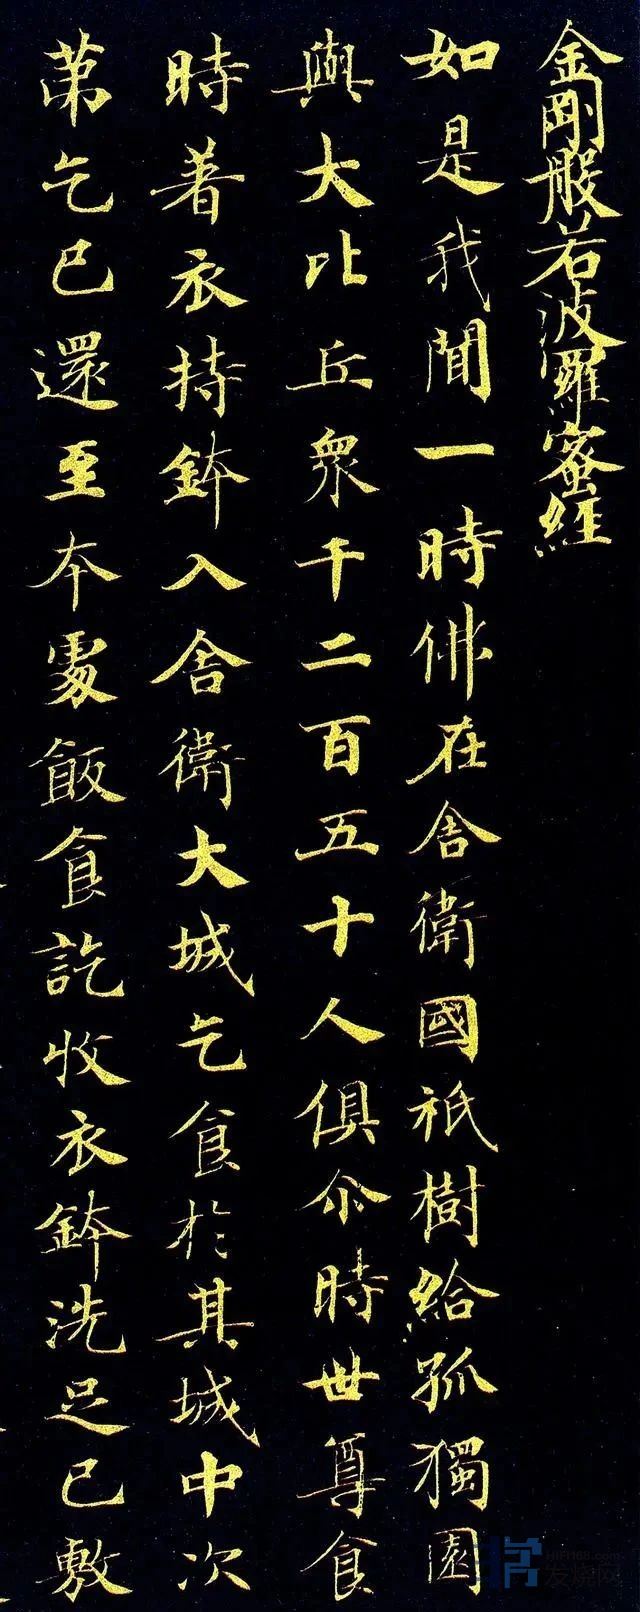 金剛般若波羅蜜經
如是我聞一時佛在舎衛國祇樹給孤獨園
與大比丘衆千二百五十人俱尒時世尊食
時著衣持鉢入舎衛大城乞食於其城中次
苐乞已還至本處飯食訖收衣鉢洗足已敷
HIFI168.com
发烧网